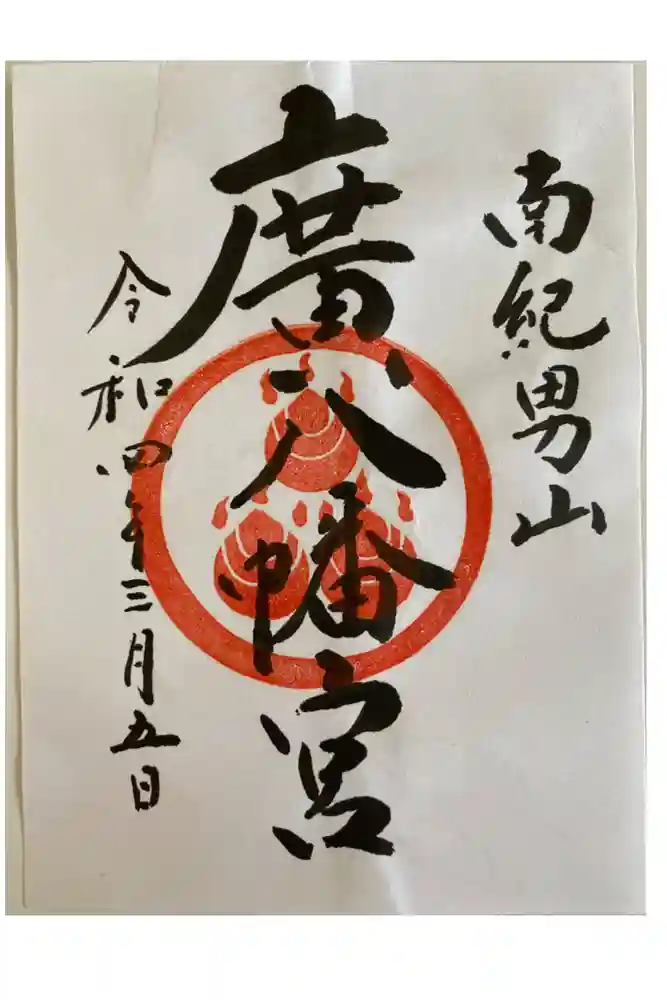 南紀男山
廣八幡宮
令和四年三月五日